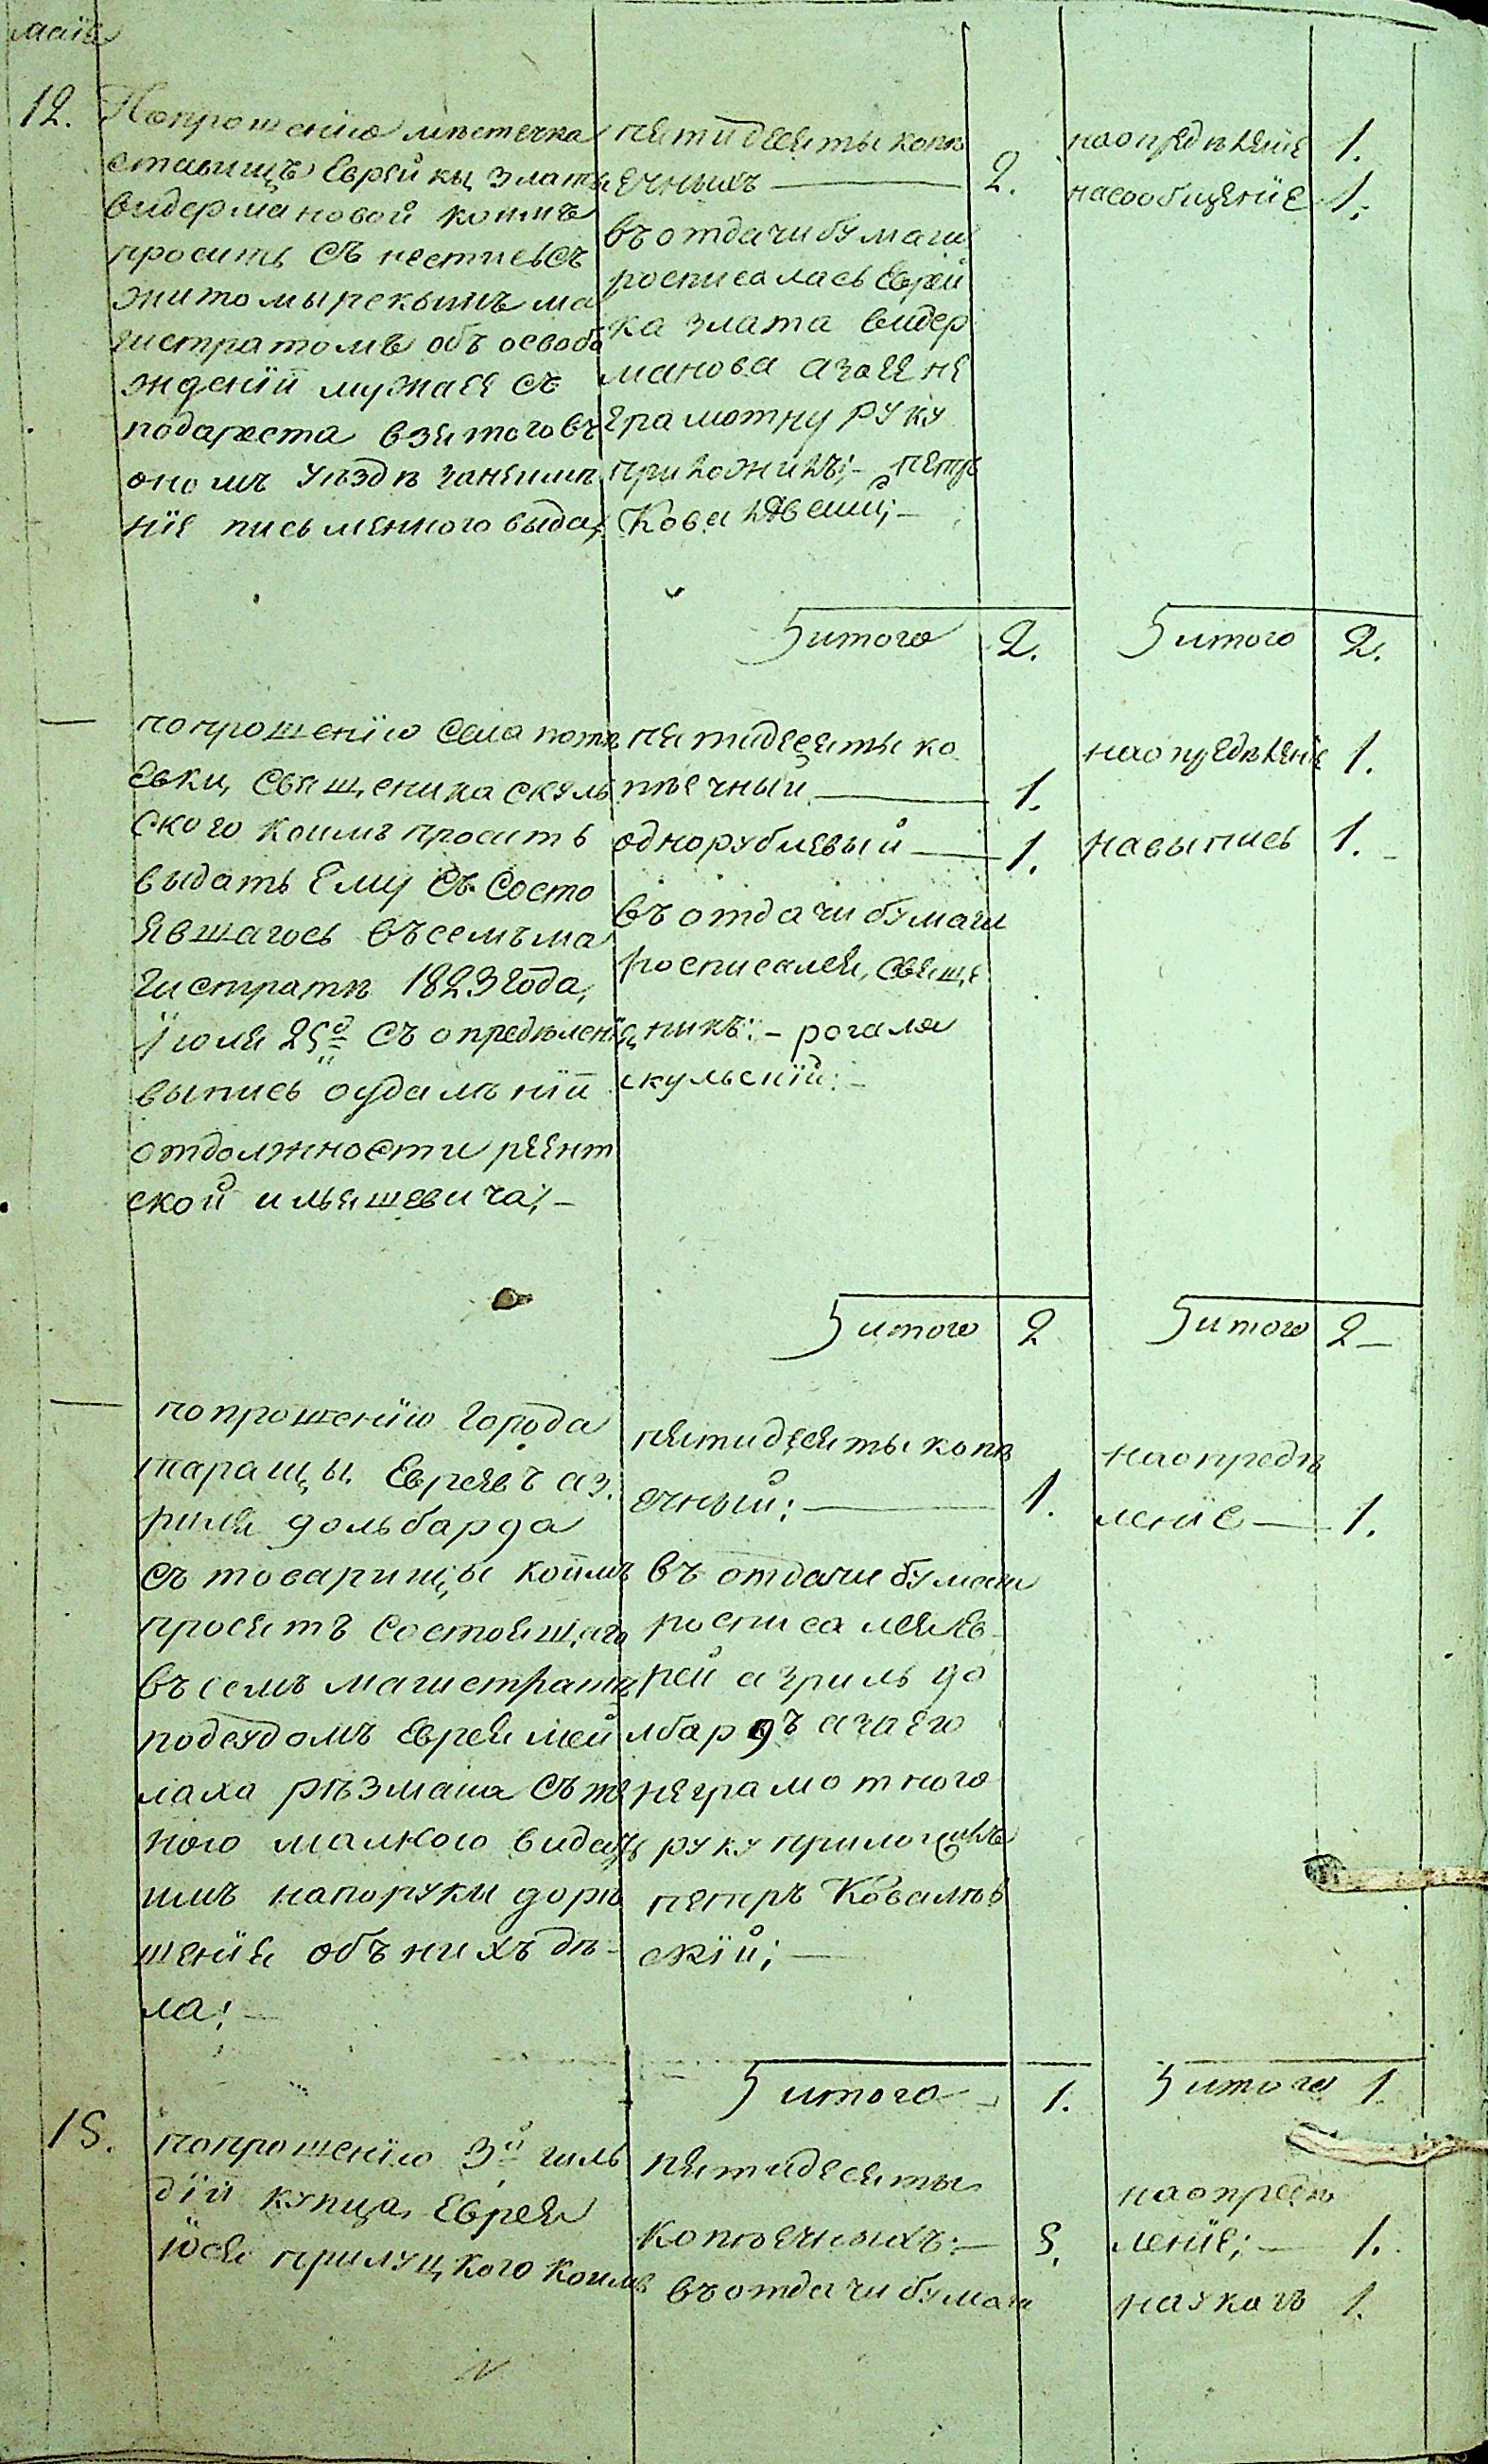 маія
12.
Попрошенію мѣстечка
ставищъ Еврейки златы
видермановой коимъ
проситъ Съ нестись съ
житомырскымъ ма
гистратомъ объ освобо
жденіи мужа ея съ
подареста взятого въ
ономъ уѣздѣ занеимѣ
ніе письменного выда,
пятидесяты копѣ
ечныхъ — 2.
въ отдачи бумаги
росписалась Еврей
ка злата видер
манова а за ее не
грамотну руку
приложилъ;- петръ
Ковалѣвскій;-
наопредѣленіе 1.
насообщеніе 1.
итого 2.
итого 2.
—
попрошенію Села потѣ
евки, Священика скуль
ского коимъ проситъ
выдать Ему съ Состо
явшагось въ семъ ма
гистратѣ 1823 года,
Іюля 25д Съ опредѣленія
выпись оудаленіи
отдолжности реент
ской ильяшевича;-
пятидесяты ко
пѣечный — 1.
однорублевый — 1.
въ отдачи бумаги
росписался, Свяще
никъ:- рогаля
скульскій:-
наопредѣленіе 1.
навыпись 1.-
итого 2
итого 2-
—
попрошенію города
таращы Евреевъ аз
риля гольбарда
съ товарищы коимъ
просятъ Состоящаго
въ семъ магистратѣ
подсудомъ Еврея мей
лаха рѣзмана Съ же
ною малкою видать
имъ напоруки дорѣ
шенія объ нихъ дѣ-
ла;-
пятидесяты копѣ
ечный; — 1.
въ отдачи бумаги
росписался Ев
рей азриль го
лбардъ а за его
неграмотного
руку приложилъ
петръ Ковалѣв
скій;—
наопредѣ
леніе — 1.
итого 1.
итого 1
15.
попрошенію 3й гиль
діи купца, Еврея
іося прилуцкого коимъ
пятидесяты
копѣечныхъ:— 5.
въ отдачи бумаги
наопредѣ
леніе;— 1.
науказъ 1.